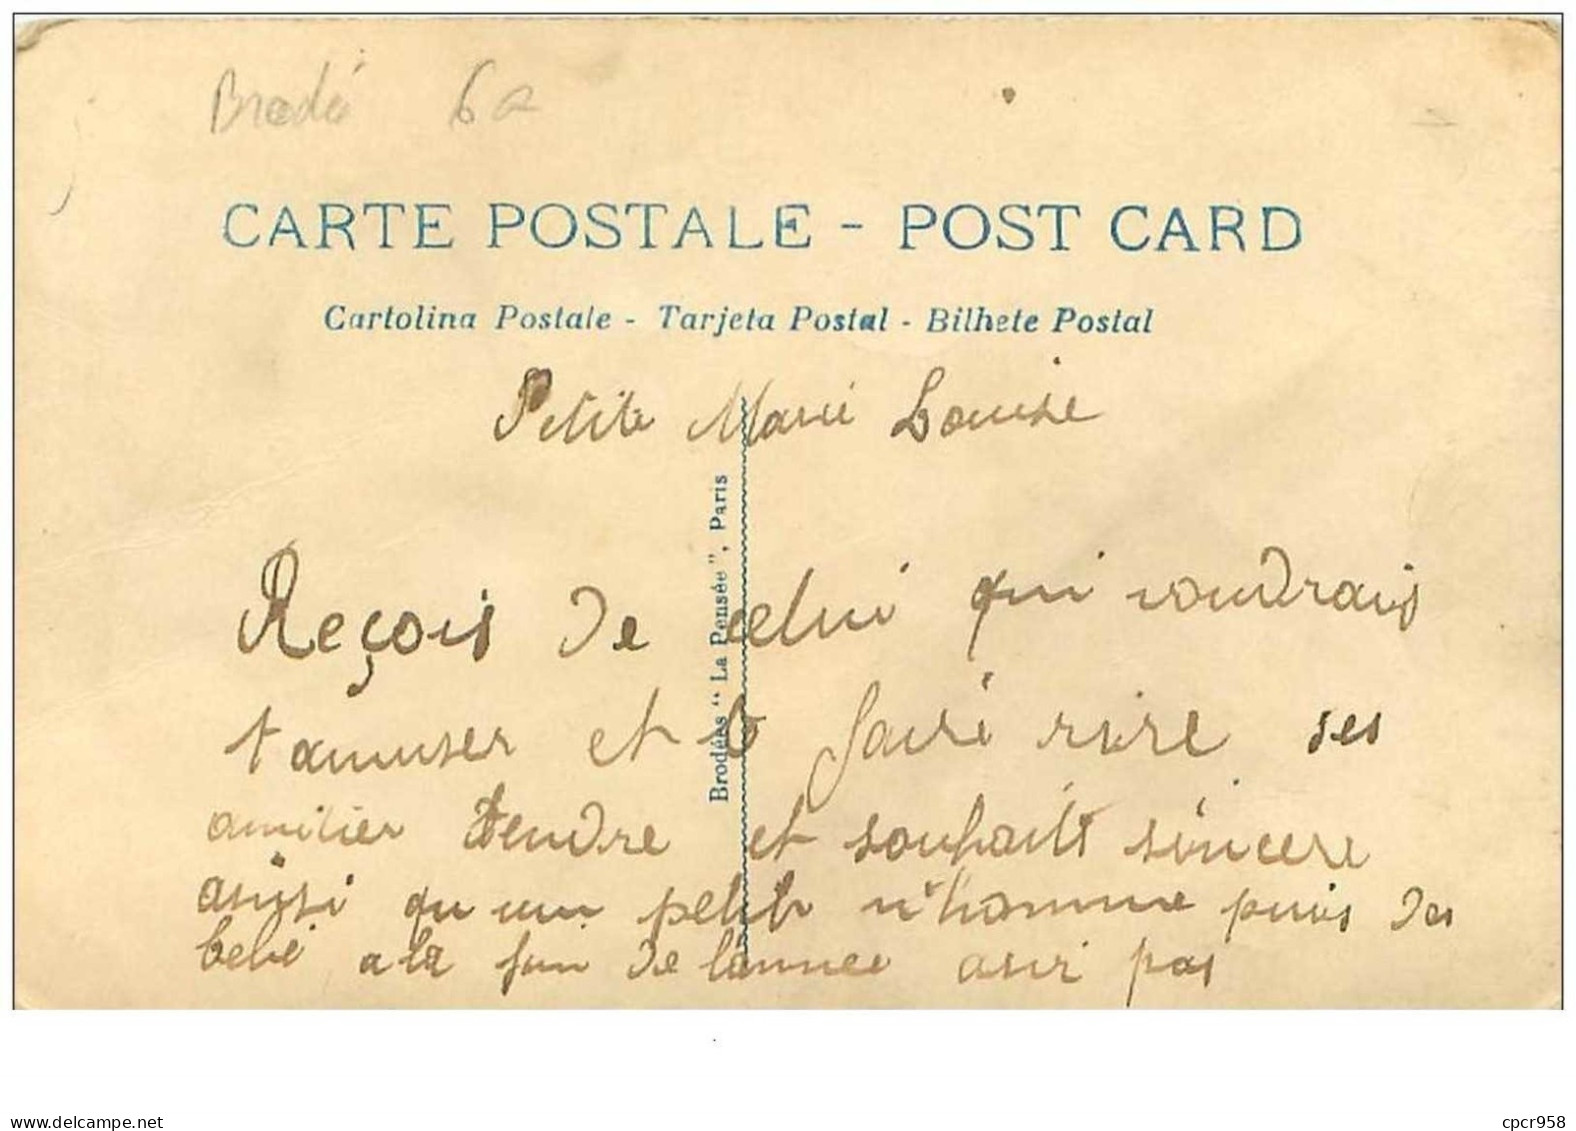 Brodé 6a
CARTE POSTALE - POST CARD
Cartolina Postale - Tarjeta Postal - Bilhete Postal
Petite Marie Louise
Brodées "La Pensée", Paris
Reçois de celui qui voudrais
t'amuser et te faire rire ses
amitier tendre et souhait sincere
ausisi qu un petit n'homme puis des
bebé a la fin de l'annee
pas
www.delcampe.net
cpcr958